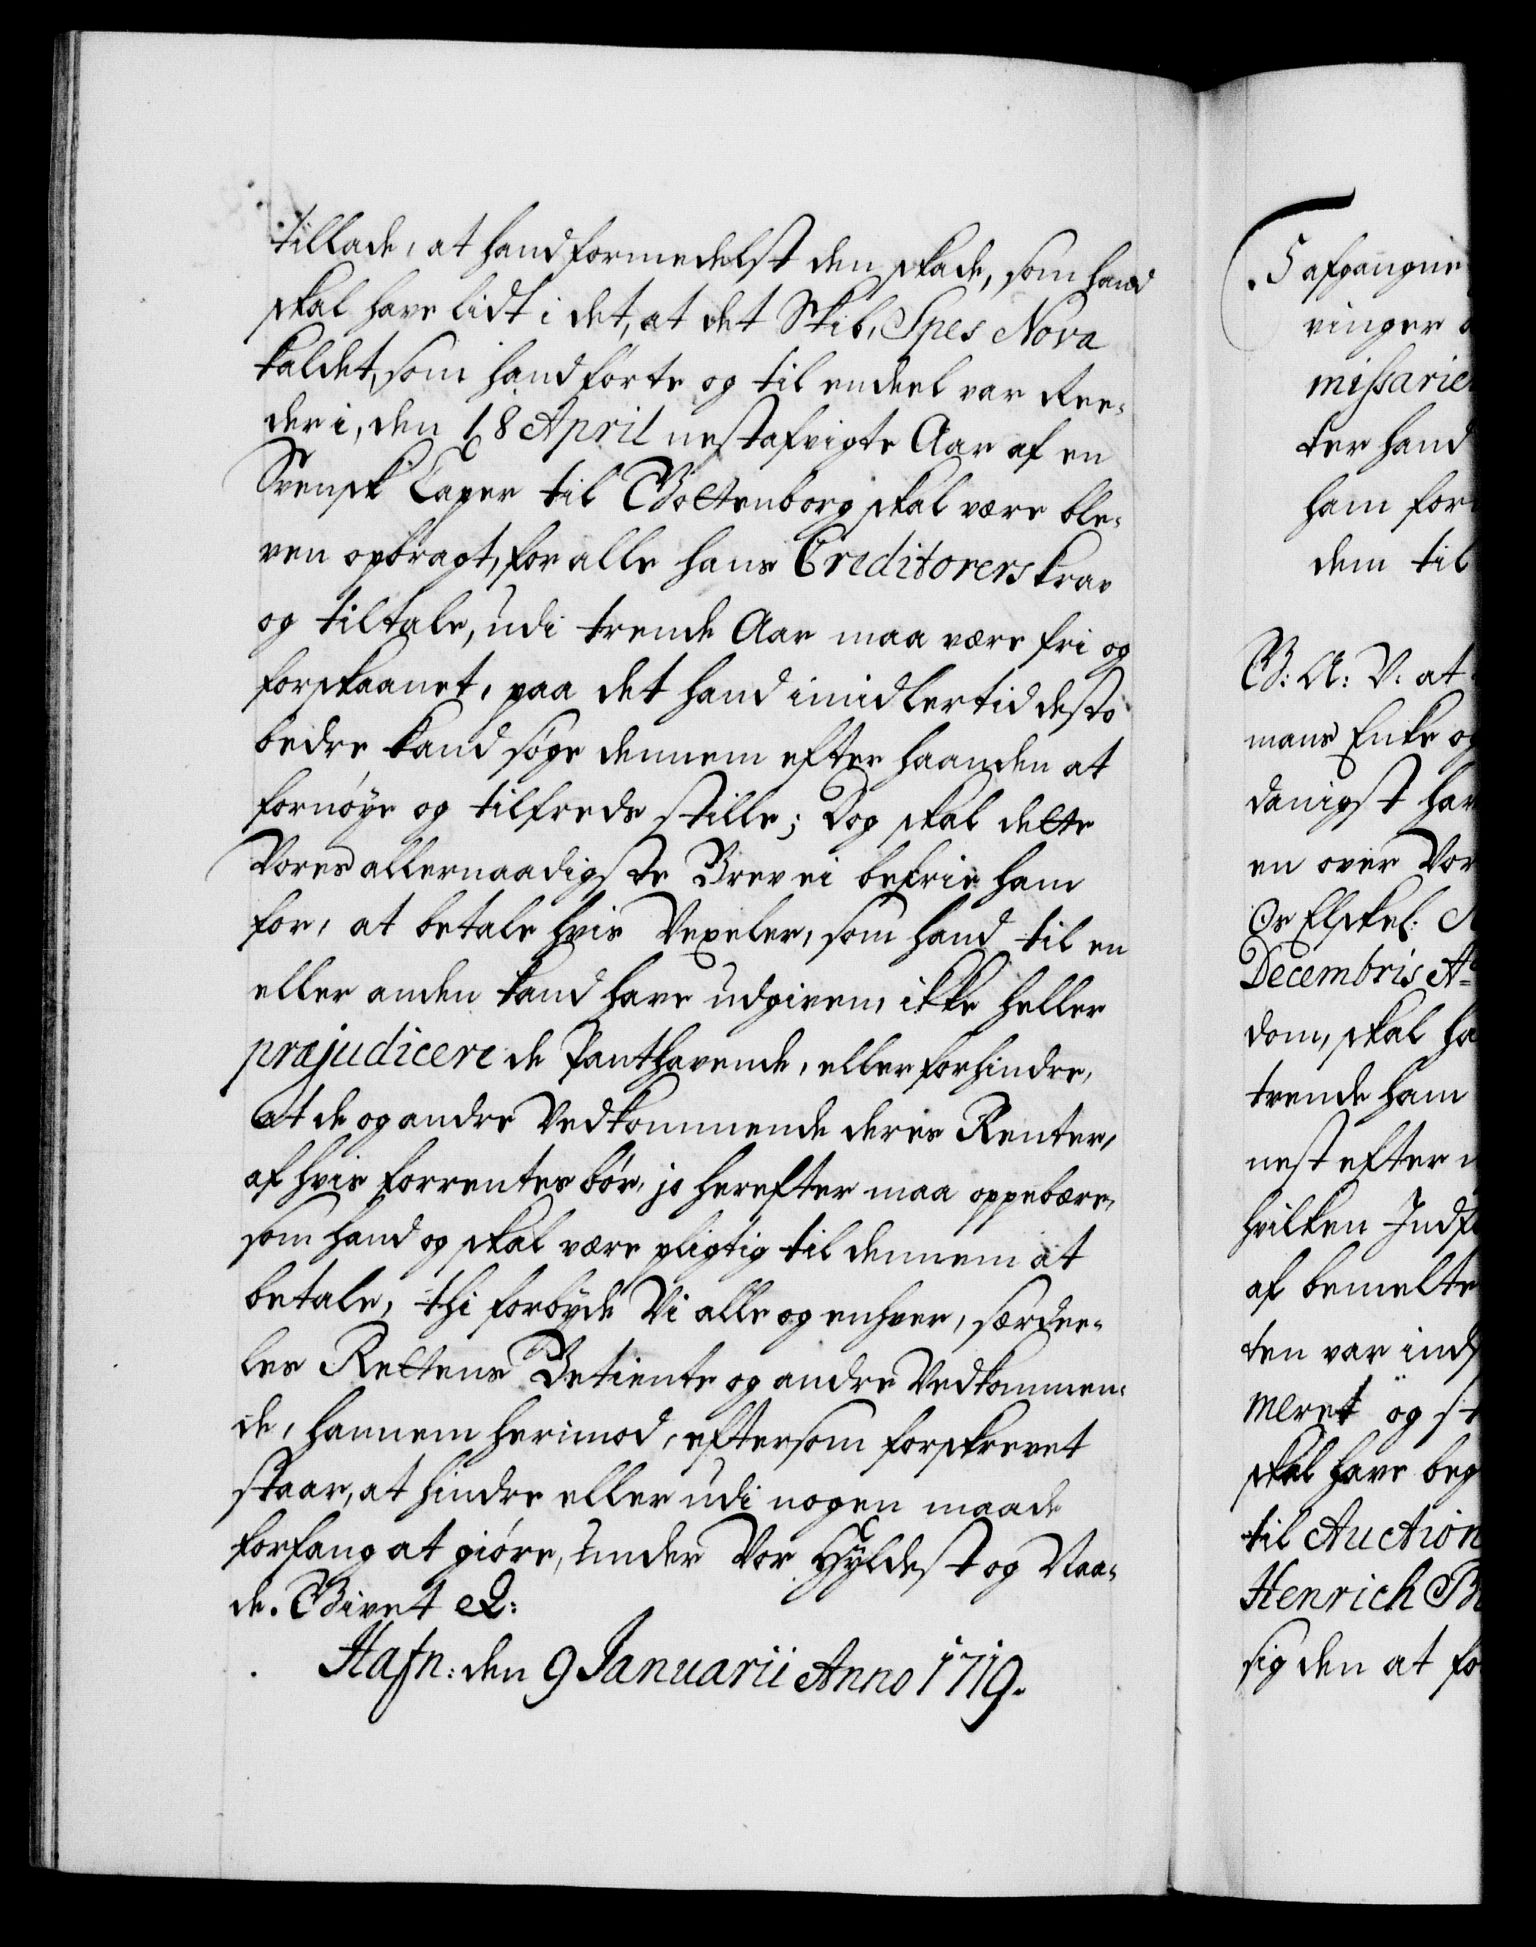 tillade, at hand formedelst den skade, som hand
skal have lidt i det, at det Skib, Spes Nova
kaldet, som hand førte og til endeel var Ree-
der i, den 18 April nestafvigte Aar af en
Svensk Caper til Gottenborg skal være ble-
ven opbragt, for alle hans Creditorers krav
og tiltale, udi trende Aar maa være fri og
forskaanet, paa det hand imidlertid desto
bedre kand søge dennem efter haanden at
fornøye og tilfreds stille; Dog skal dette
Vores allernaadigste Brev ei befrie ham
for, at betale hvis Vexeler, som hand til en
eller anden kand have udgiven, ikke heller
præjudicere de Panthavende, eller forhindre,
at de og andre Vedkommende deris Renter,
af hvis forrentes bør, jo herefter maa oppebære,
som hand og skal være pligtig til dennem at
betale, thi forbyde Vi alle og enhver, særdee-
les Rettens Betiente og andre Vedkommen-
de, hannem herimod, eftersom forskrevet
staar, at hindre eller udi nogen maade
forfang at giøre, under Vor Hyldest og Naa-
de. Givet &:
Hafn: den 9 Januarii Anno 1719.
5 afgangne
vinger
missarie
ter hand
ham for
dem til
G: A: V: at
mans Enke og
danigst har
en over Vor
Os Elskel:
Decembris Ao
dom, skal ha
trende ham
nest efter
hvilken Indf
af bemelte
ten var ind
meret og st
skal have beg
til Auction
Henrich
sig den at fo